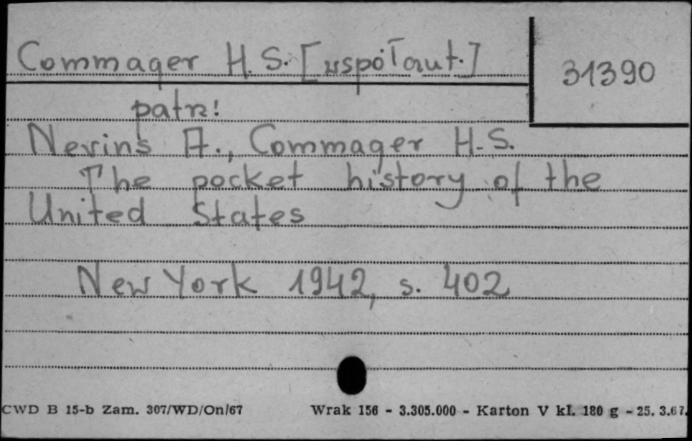 Commager H. S. [współaut.]
31390
patrz!
Nevins A., Commager H.S.
The pocket history of the
United States
New York 1942, s. 402
CWD B 15-b Zam. 307/WD/On/67 Wrak 156 - 3.305.000 - Karton V kl. 180 g - 25. 3.67.